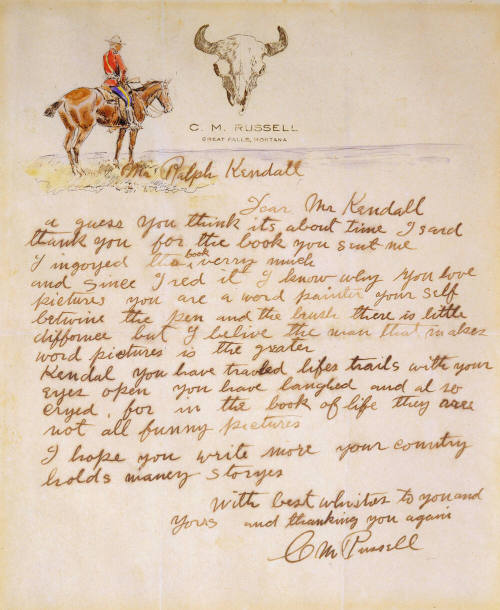 C. M. RUSSELL
GREAT FALLS, MONTANA
Mr Ralph Kendall
Dear Mr Kendall
a guess you think its about time I said
thank you for the book you sent me
I ingoyed the book verry much
and since I red it I know why you love
pictures you are a word painter your self
betwine the pen and the brush there is little
diffornce but I belive the man that makes
word pictures is the greater
Kendal you have traveled lifes trails with your
eyes open you have laughed and al so
cryed, for in the book of life they are
not all funny pictures
I hope you write more your country
holds maney storyes
With best whishes to you and
yors and thanking you again
C M Russell